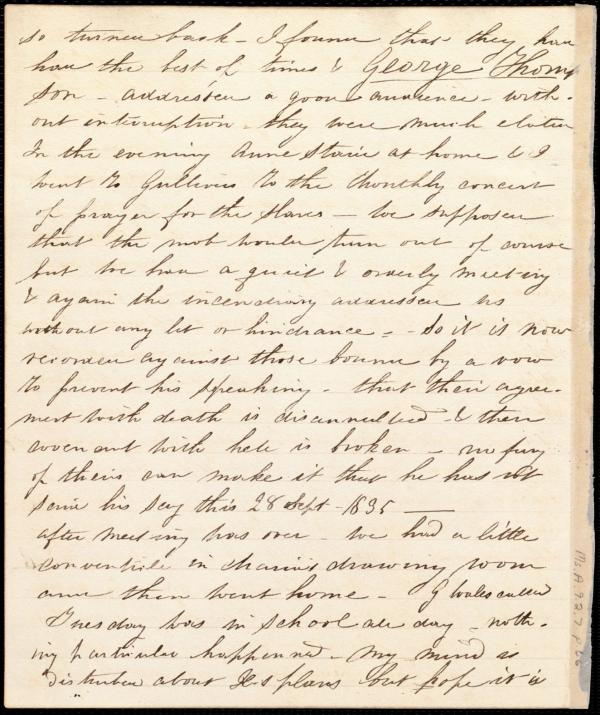 so turned back - I found that they had
had the best of times & George Thomp
son - addressed a good audience - with-
out interruption - they were much elated
In the evening Anne Staid at home & I
went to Gullivers to the Monthly concert
of prayer for the slaves - We supposed
that the mob would turn out of course
but we had a quiet & orderly meeting
& again the incendiary addressed us
without any let or hindrance - - So it is now
recorded against those bound by a vow
to prevent his speaking - that their agree-
ment with death is disannulled - & their
covenant with hell is broken - no fury
of theirs can make it that he has not
said his say this 28 Sept - 1835 —
after meeting was over - we had a little
conventicle in drawing room
and then went home - G Wales called
Tuesday was in school all day - noth-
ing particular happened - my mind is
disturbed about plans but hope it is
Ms.A.9.2.7 p 66